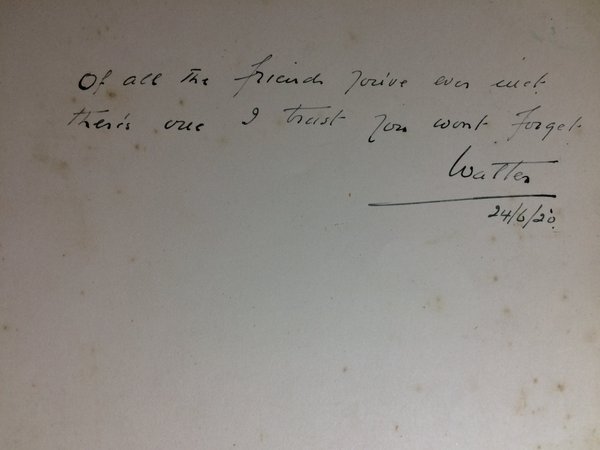 Of all the friends you've ever met
there's one I trust you wont forget
Walter
24/6/20